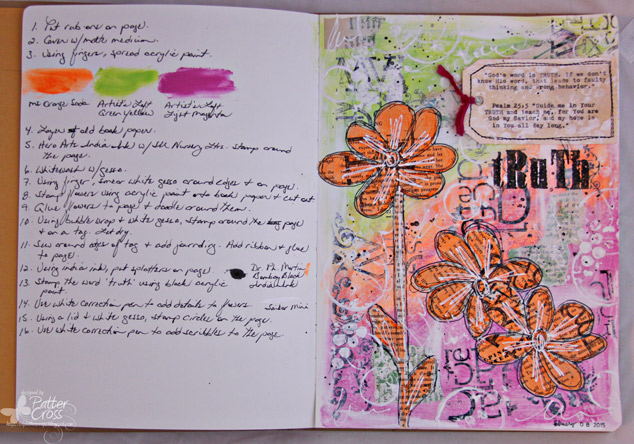 1. Put rub ons on page.
2. Cover w/ matte medium.
3. Using fingers, spread acrylic paint.
Orange Soda
Artist's Loft
Green Yellow
Artist's Loft
Light Magenta
4. Layer old book paper.
5. Hero Arts India ink w/ Stamp around
the page.
6. Whitewash w/ gesso.
7. Using finger, smear white gesso around edges + on page.
8. Stamp flowers using acrylic paint onto book paper + cut out
9. Glue flowers to page + doodle around them.
10. Using bubble wrap + white gesso, stamp around the page
+ on a tag. Let dry.
11. Sew around edges of tag + add journaling. Add ribbon + glue
to page.
12. Using india ink, put splatters on page.
Dr. Ph. Martin
Bombay Black
India Ink
13. Stamp the word 'truth' using black acrylic
paint.
14. Use white correction pen to add details to flowers.
15. Using a lid + white gesso, stamp circles on the page.
16. Use white correction pen to add scribbles to the page
"God's word is TRUTH. If we don't
know His word, that leads to faulty
thinking and wrong behavior.
Psalm 25:5 "Guide me in Your
TRUTH and teach me, for You are
God my Savior, and my hope is
in You all day long."
tRuTh
08 2015
designed by
Patter
Cross